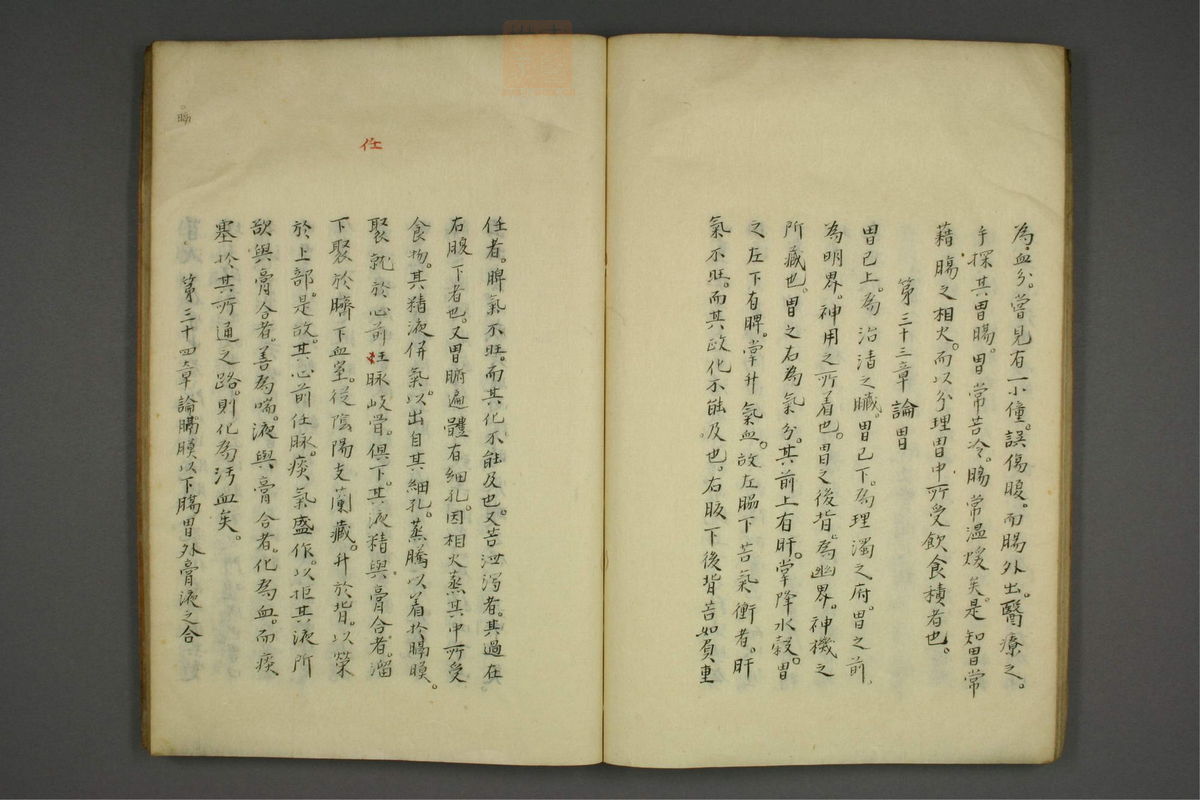 為血分。嘗見有一小僮。誤傷腹。而腸外出。醫療之。
手探其胃腸。胃常苦冷。腸常温煖矣。是知胃常
藉腸之相火。而以分理胃中所受飲食積者也。
第三十三章 論胃
胃已上。為治清之臟。胃已下。為理濁之府。胃之前
為明界。神用之所着也。胃之後背。為幽界。神機之
所藏也。胃之右為氣分。其前上有肝。掌降水穀。胃
之左下有脾。掌升氣血。故左脇下苦氣衝者。肝
氣不旺。而其歐化不能及也。右胲下後背苦如負重
任者。脾氣不旺。而其化不能及也。又苦泄瀉者。其過在
右腹下者也。又胃腑遍體有細孔。因相火蒸其中所受
食物。其精液併氣。以出自其細孔。蒸騰以着於膈膜。
聚就於心前任脉岐骨。俱下。其液精與膏合者。溜
下聚於臍下血室。從陰陽支蘭藏。升於背。以榮
於上部。是故。其心前任脉。痰氣盛作。以拒其液所
欲與膏合者。善為喘。液與膏合者。化為血。而痰
塞於其所通之路。則化為汚血矣。
第三十四章 論膈膜以下腸胃外膏液之合
任